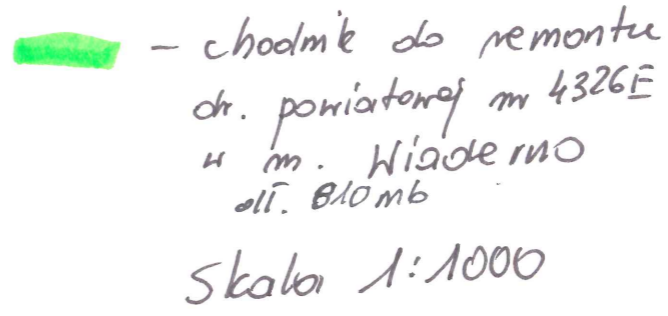 – chodnik do remontu
dr. powiatowej nr 4326E
w m. Wiaderno
dł. 810mb
Skala 1:1000